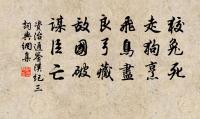 狡兔死
走狗烹
飛鳥盡
良弓藏
敌國破
謀臣亡
資治通鑒漢紀三
詞典網集